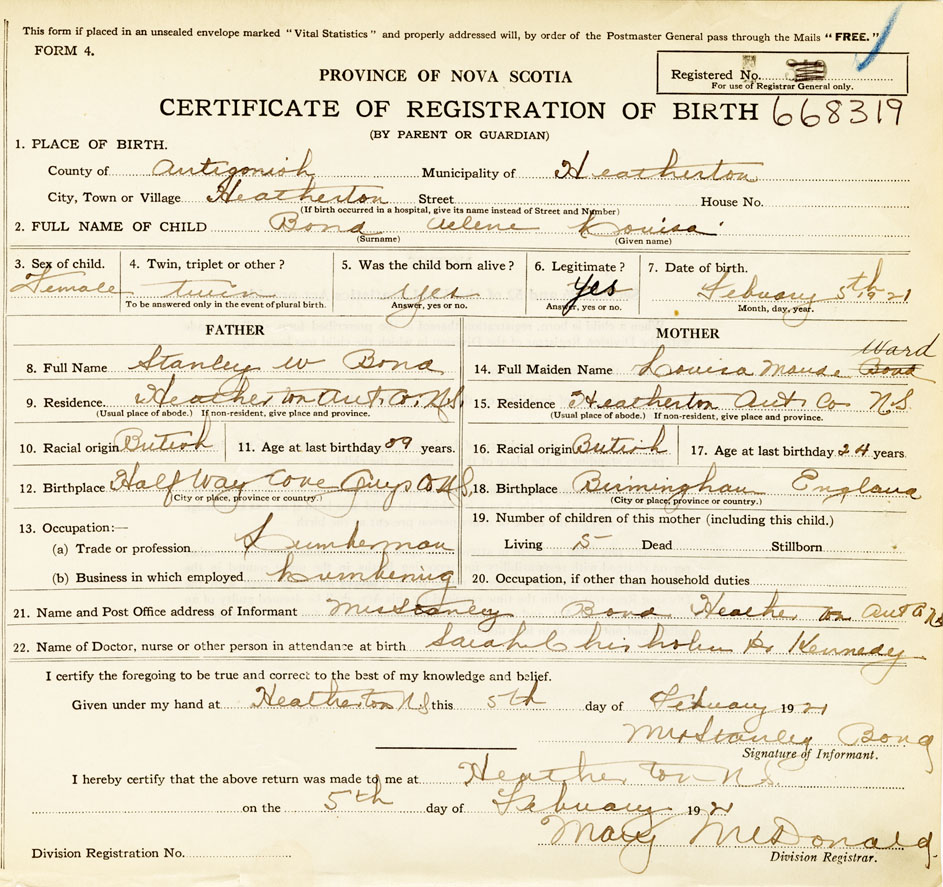 This form if placed in an unsealed envelope marked "Vital Statistics" and properly addressed will, by order of the Postmaster General pass through the Mails "FREE."
FORM 4.
PROVINCE OF NOVA SCOTIA
Registered No.
For use of Registrar General only.
CERTIFICATE OF REGISTRATION OF BIRTH 668319
(BY PARENT OR GUARDIAN)
1. PLACE OF BIRTH.
County of Antigonish Municipality of Heatherton
City, Town or Village Heatherton Street House No.
(If birth occurred in a hospital, give its name instead of Street and Number)
2. FULL NAME OF CHILD Bond Louisa
(Surname) (Given name)
3. Sex of child. 4. Twin, triplet or other? 5. Was the child born alive? 6. Legitimate? 7. Date of birth.
Female twin Yes Yes Febuary 5th 1921
To be answered only in the event of plural birth. Answer, yes or no. Answer, yes or no. Month, day, year.
FATHER MOTHER
Ward
8. Full Name Stanley W Bond 14. Full Maiden Name Louisa Bond
9. Residence. Heatherton Ant. Co. N.S 15. Residence Heatherton Ant Co N.S
(Usual place of abode.) If non-resident, give place and province. (Usual place of abode.) If non-resident, give place and province.
10. Racial origin British 11. Age at last birthday 39 years. 16. Racial origin British 17. Age at last birthday 24 years.
12. Birthplace Half Way Cove Guys Co N.S. 18. Birthplace Birmingham England
(City or place, province or country.) (City or place, province or country.)
13. Occupation:— 19. Number of children of this mother (including this child.)
(a) Trade or profession Lumberman Living 5 Dead Stillborn
(b) Business in which employed Lumbering 20. Occupation, if other than household duties
21. Name and Post Office address of Informant Mrs Stanley Bond Heatherton Ant Co N.S
22. Name of Doctor, nurse or other person in attendance at birth Sarah Chisholm Dr Kennedy
I certify the foregoing to be true and correct to the best of my knowledge and belief.
Given under my hand at Heatherton N.S this 5th day of Febuary 1921
Mrs Stanley Bond
Signature of Informant.
I hereby certify that the above return was made to me at Heatherton N.S.
on the 5th day of Febuary 1921
Mary McDonald
Division Registration No. Division Registrar.